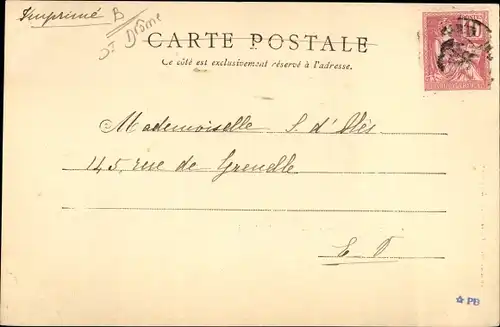 Imprimé
B
Drôme
CARTE POSTALE
Ce côté est exclusivement réservé à l'adresse.
Mademoiselle S. d'Alès
145, rue de Grenelle
PB